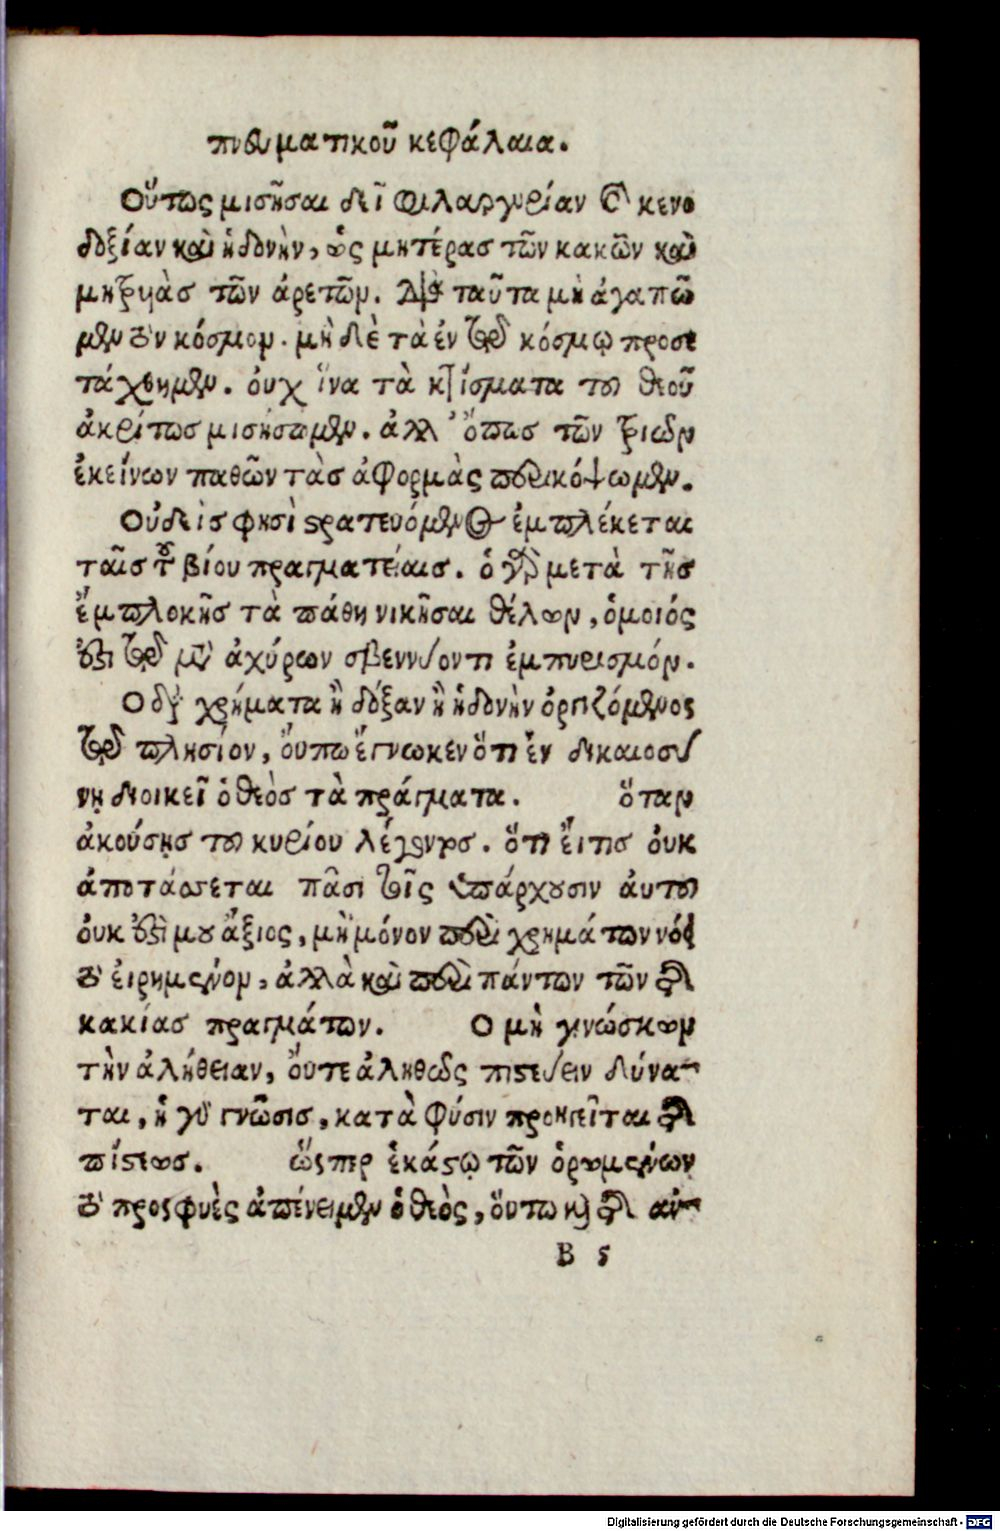 πνευματικοῦ κεφάλαια.
Οὕτως μισῆσαι δεῖ φιλαργυρίαν καὶ κενο
δοξίαν καὶ ἡδονὴν, ὡς μητέρας τῶν κακῶν καὶ
μητρυιὰς τῶν ἀρετῶν. διὰ ταῦτα μὴ ἀγαπῶ
μεν τὸν κόσμον. μὴ δὲ τὰ ἐν τῷ κόσμῳ προσε
τάχθημεν. ὀυχ ἵνα τὰ κτίσματα τοῦ θεοῦ
ἀκρίτως μισήσωμεν. ἀλλ' ὅπως τῶν τριῶν
ἐκείνων παθῶν τὰς ἀφορμὰς περικόψωμεν.
Οὐδεὶς φησὶ στρατευόμενος ἐμπλέκεται
ταῖς τοῦ βίου πραγματείαις. ὁ γὰρ μετὰ τῆς
ἐμπλοκῆς τὰ πάθη νικῆσαι θέλων, ὁμοιός
ἐστι τῷ μετὰ ἀχύρων σβεννύοντι ἐμπυρισμόν.
Ο διὰ χρήματα ἢ δόξαν ἢ ἡδονὴν ὀργιζόμενος
τῷ πλησίον, ὄυπω ἔγνωκεν ὅτι ἐν δικαιοσύ
νῃ διοικεῖ ὁ θεὸς τὰ πράγματα. ὅταν
ἀκούσῃς τοῦ κυρίου λέγοντος. ὅτι ἔι τις ὀυκ
ἀποτάσσεται πᾶσι τοῖς ὑπάρχουσιν ἀυτοῦ
ὀυκ ἐστὶ μου ἄξιος, μὴ μόνον περὶ χρημάτων νόει
τὸ ἐιρημένον, ἀλλὰ καὶ περὶ πάντων τῶν τῆς
κακίας πραγμάτων. Ο μὴ γινώσκων
τὴν ἀλήθειαν, ὄυτε ἀληθῶς πιστεύειν δύνα-
ται, ἡ γὰρ γνῶσις, κατὰ φύσιν προηγεῖται τῆς
πίστεως. ὥςπερ ἑκάστῳ τῶν ὁρωμένων
τὸ προςφυὲς ἀπένειμεν ὁ θεὸς, ὅυτω καὶ τῆς αν-
Β ς
Digitalisierung gefördert durch die Deutsche Forschungsgemeinschaft - DFG